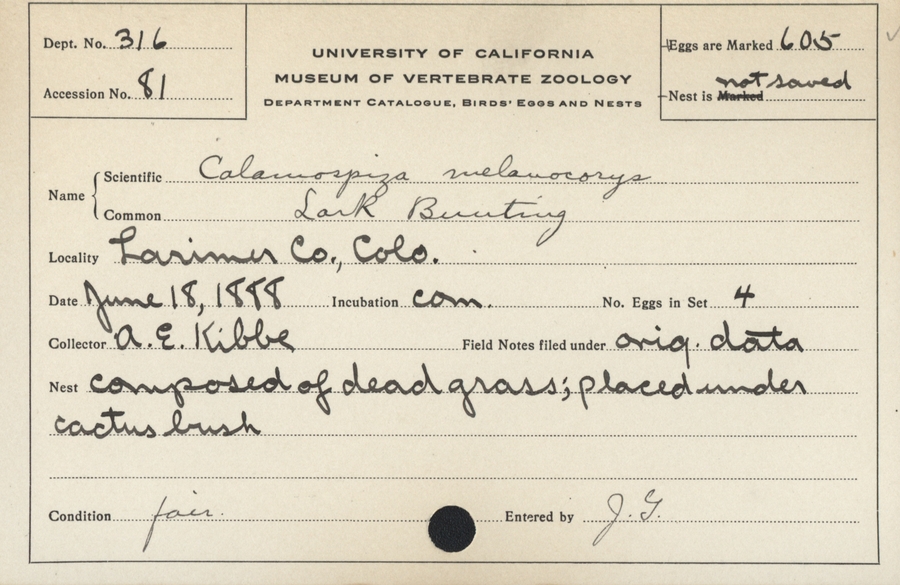 Dept. No. 316
Accession No. 81
UNIVERSITY OF CALIFORNIA
MUSEUM OF VERTEBRATE ZOOLOGY
DEPARTMENT CATALOGUE, BIRDS' EGGS AND NESTS
Eggs are Marked 605
not saved
Nest is Marked
Name
Scientific Calamospiza melanocorys
Common Lark Bunting
Locality Larimer Co., Colo.
Date June 18, 1888 Incubation com. No. Eggs in Set 4
Collector A. E. Kibbe Field Notes filed under orig. data
Nest composed of dead grass; placed under
cactus bush
Condition fair. Entered by J. G.